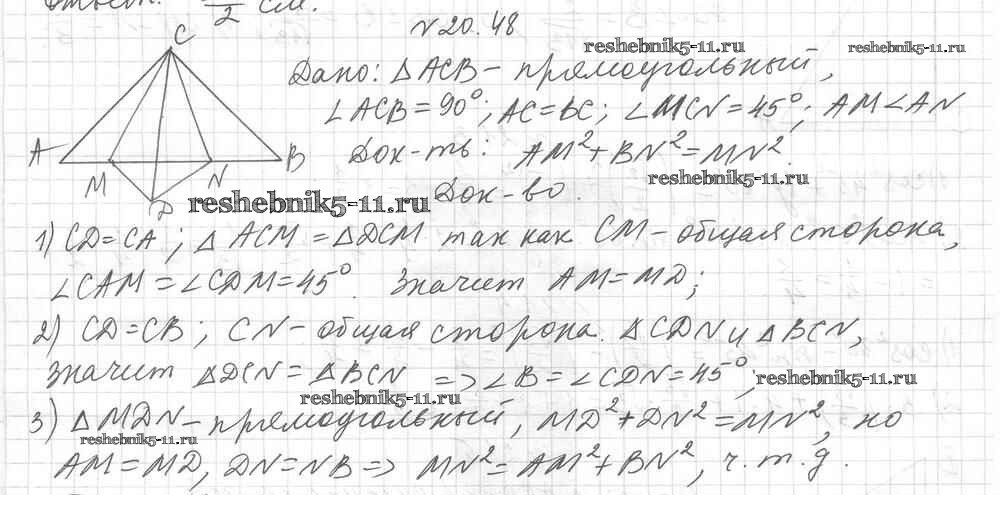 2 см.
N 20.48
reshebnik5-11.ru
reshebnik5-11.ru
C
Дано: △ACB – прямоугольный,
∠ACB = 90°; AC = BC; ∠MCN = 45°; AM < AN
A
B
M
N
D
Док-ть: AM² + BN² = MN².
reshebnik5-11.ru
reshebnik5-11.ru
Док-во.
1) CD = CA; △ ACM = △DCM так как CM – общая сторона,
∠CAM = ∠CDM = 45°. Значит AM = MD;
2) CD = CB; CN – общая сторона △CDN и △BCN,
значит △DCN = △BCN => ∠B = ∠CDN = 45°;
reshebnik5-11.ru
reshebnik5-11.ru
3) △MDN – прямоугольный, MD² + DN² = MN², но
reshebnik5-11.ru
AM = MD, DN = NB => MN² = AM² + BN², ч.т.д.